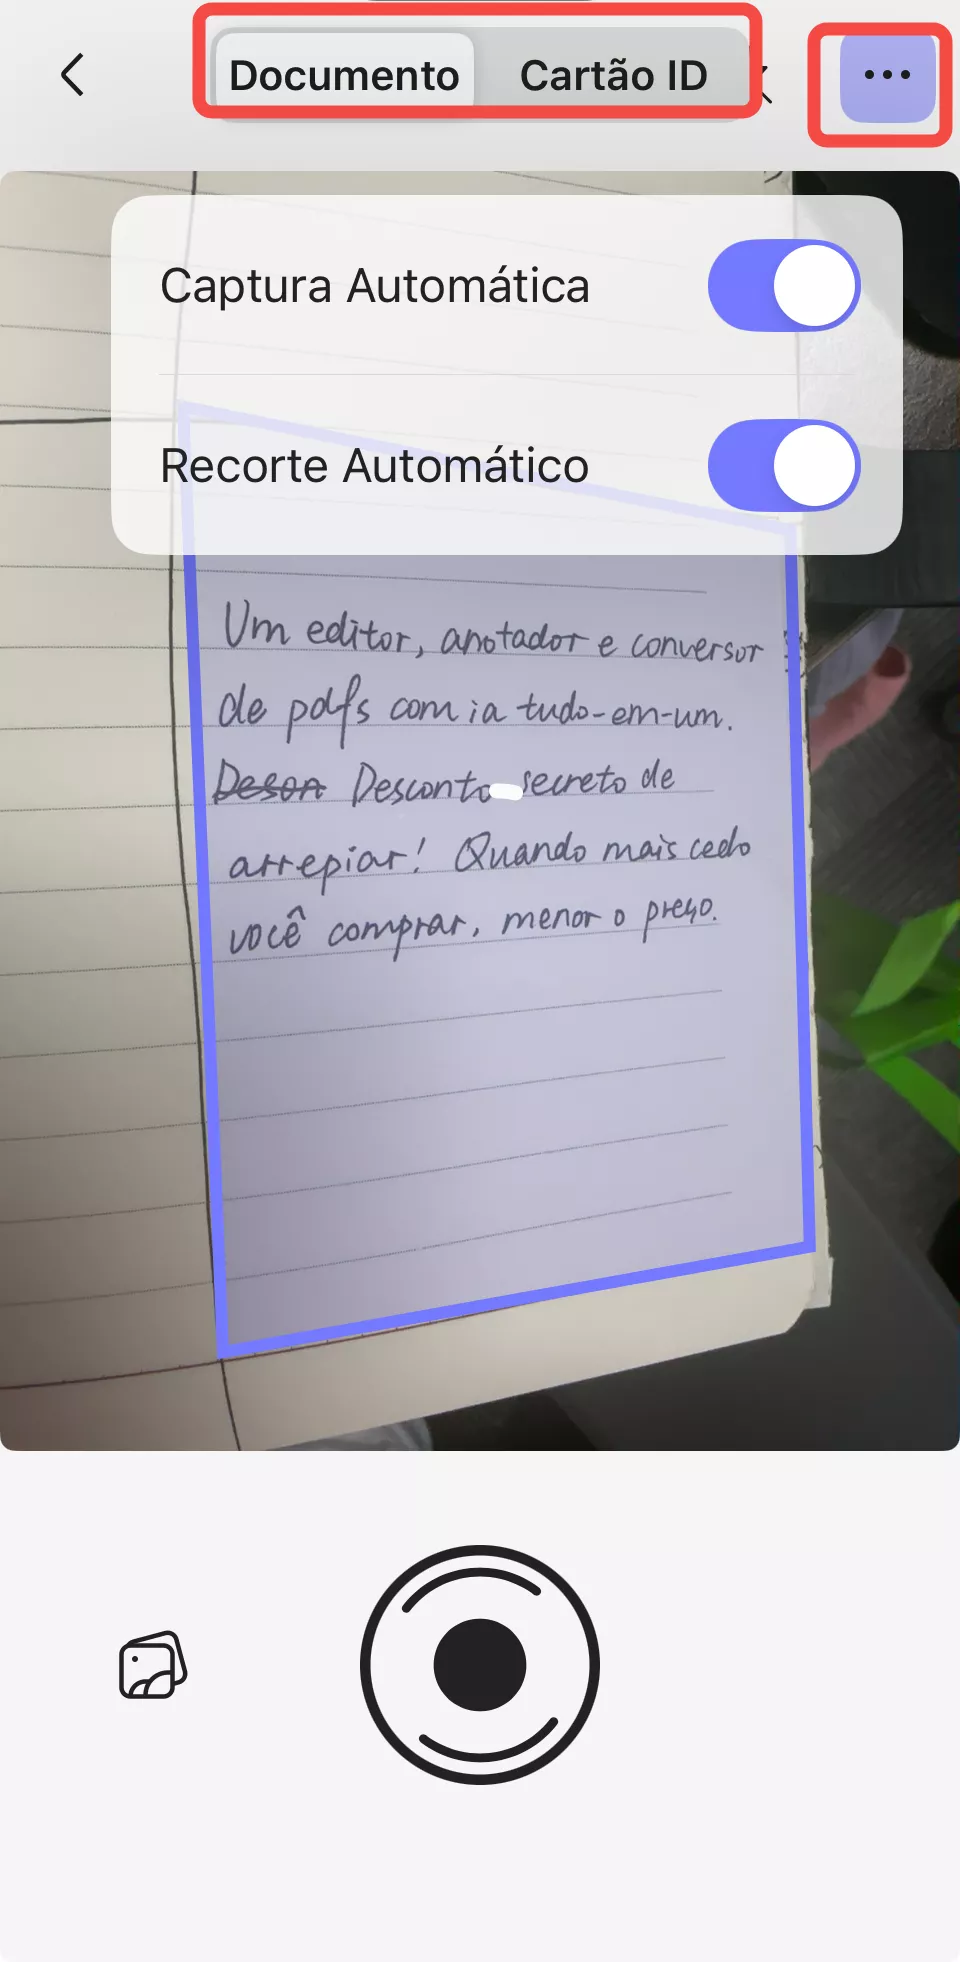 Documento Cartão ID
Captura Automática
Recorte Automático
Um editor, anotador e conversor
de pdfs com ia tudo-em-um.
Deson Desconto secreto de
arrepiar! Quando mais cedo
você comprar, menor o preço.